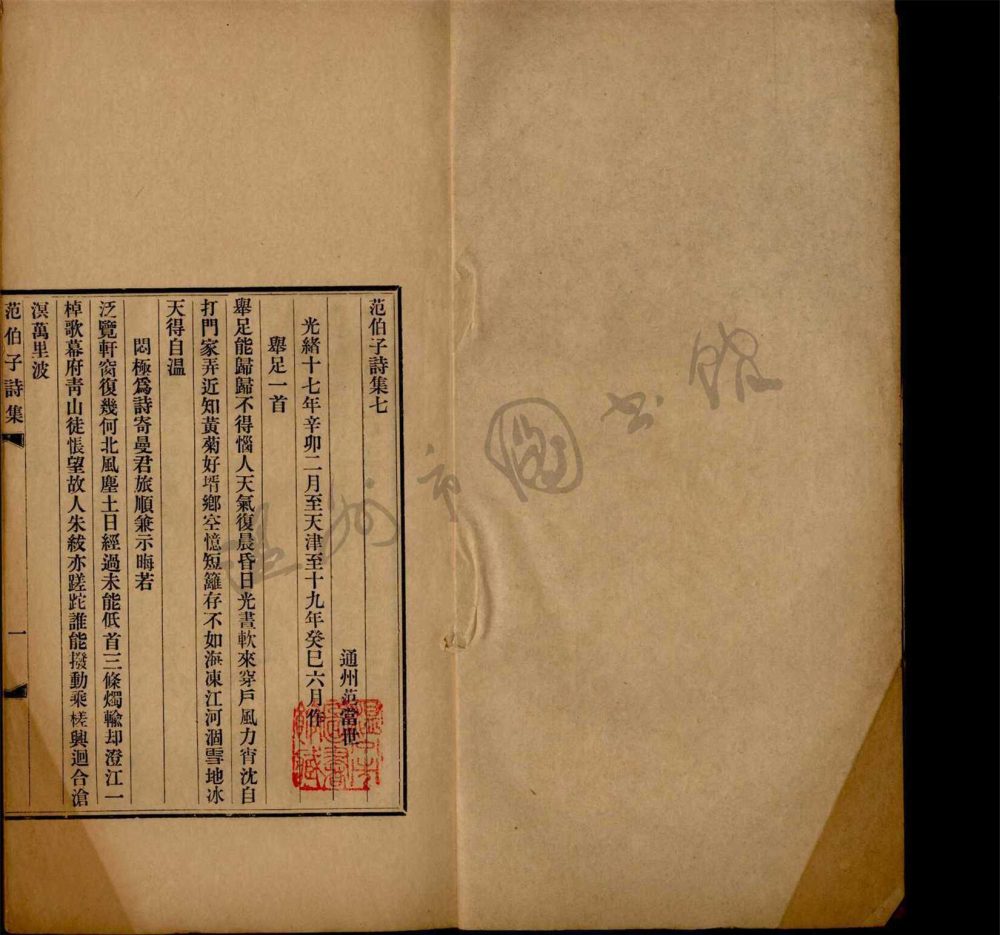 范伯子詩集七
通州范當世
光緒十七年辛卯二月至天津至十九年癸巳六月作
舉足一首
舉足能歸歸不得惱人天氣復晨昏日光晝軟來穿戶風力宵沈自
打門家弄近知黃菊好壻鄉空憶短籬存不如海凍江河涸雪地冰
天得自溫
悶極爲詩寄曼君旅順兼示晦若
泛覽軒窗復幾何北風塵土日經過未能低首三條燭輸却澄江一
棹歌幕府靑山徒悵望故人朱紱亦蹉跎誰能撥動乘槎興迴合滄
溟萬里波
范伯子詩集
一
溫州市圖書館